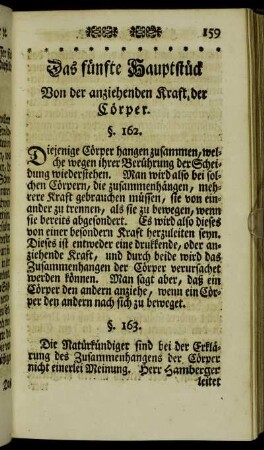 159
Das fünfte Hauptstück
Von der anziehenden Kraft, der
Cörper.
§. 162.
Diejenige Cörper hangen zusammen, wel-
che wegen ihrer Berührung der Schei-
dung wiederstehen. Man wird also bei sol-
chen Cörpern, die zusammenhängen, meh-
rere Kraft gebrauchen müssen, sie von ein-
ander zu trennen, als sie zu bewegen, wenn
sie bereits abgesondert. Es wird also dieses
von einer besondern Kraft herzuleiten seyn.
Dieses ist entweder eine drukkende, oder an-
ziehende Kraft, und durch beide wird das
Zusammenhangen der Cörper verursachet
werden können. Man sagt aber, daß ein
Cörper den andern anziehe, wenn ein Cör-
per den andern nach sich zu beweget.
§. 163.
Die Natürkündiger sind bei der Erklä-
rung des Zusammenhangens der Cörper
nicht einerlei Meinung. Herr Hamberger
leitet